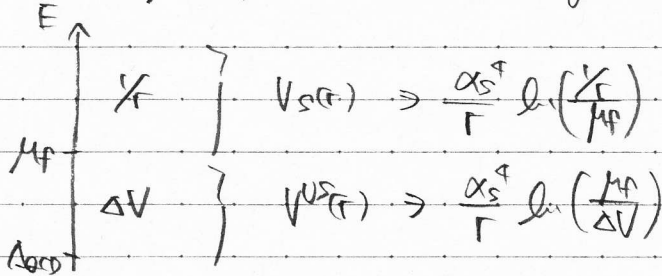 E
1/r } V_S(r) → α_s⁴/r ln((1/r)/μ_f)
μ_f
ΔV } V^{US}(r) → α_s⁴/r ln(μ_f/ΔV)
Λ_QCD